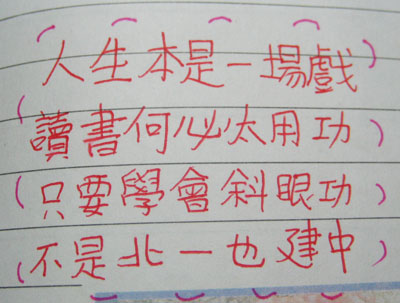 人生本是一場戲
讀書何必太用功
只要學會斜眼功
不是北一也建中